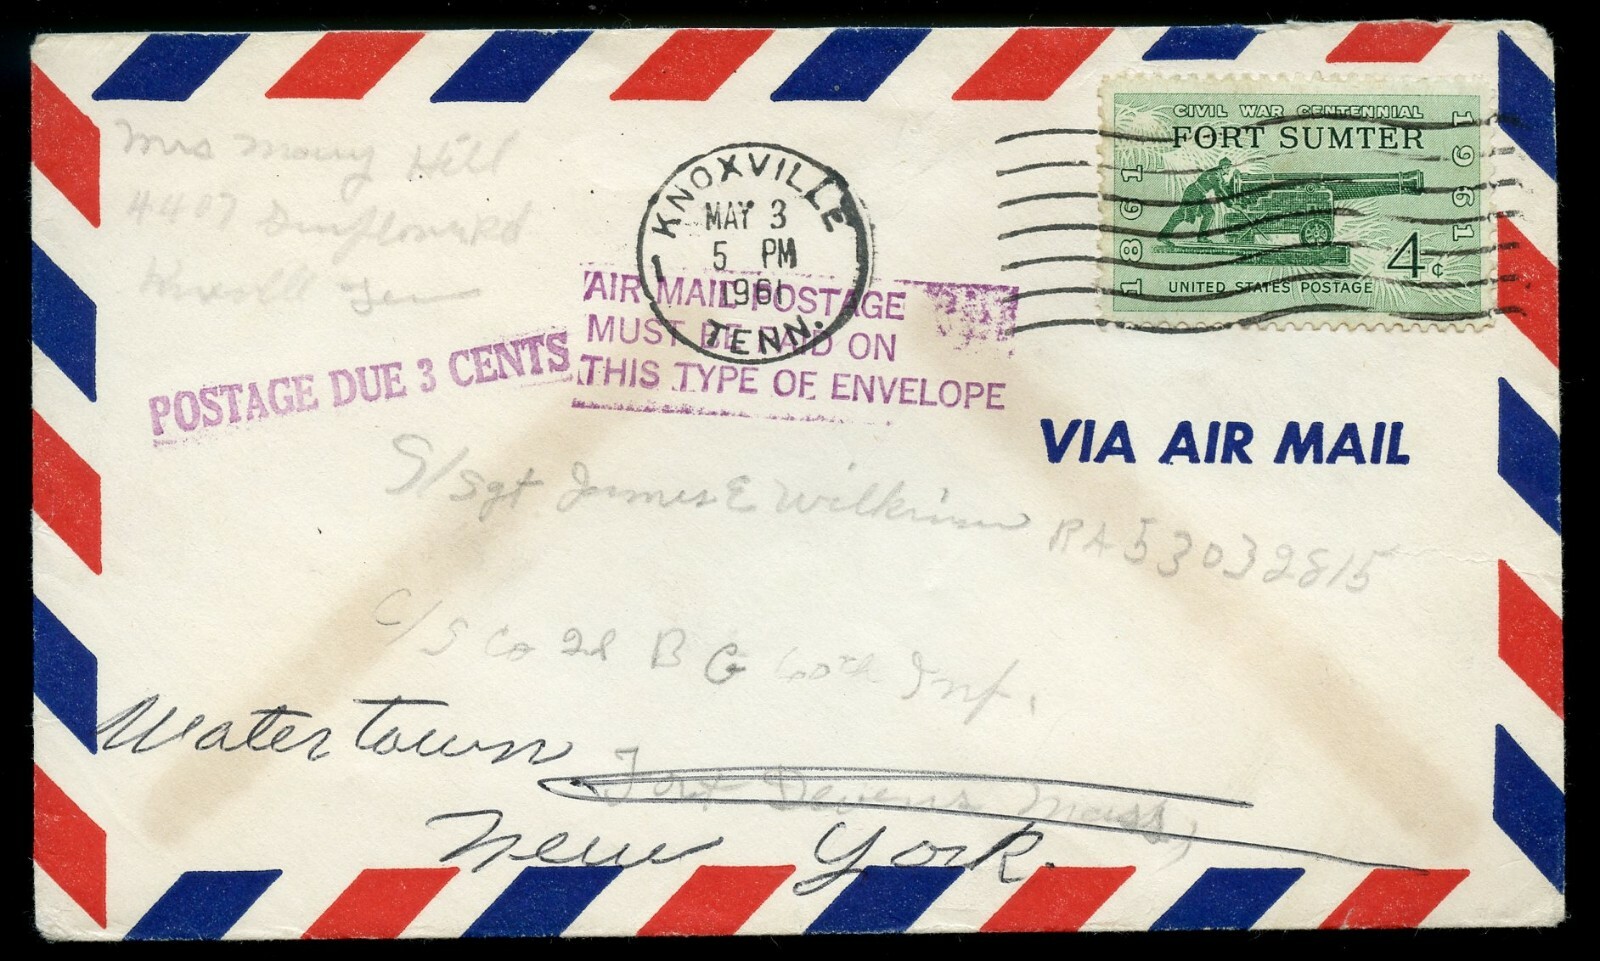 Mrs Mary Hill
4407
KNOXVILLE
MAY 3
5 PM
1961
TENN.
CIVIL WAR CENTENNIAL
FORT SUMTER
1861
1961
4¢
UNITED STATES POSTAGE
AIR MAIL POSTAGE
MUST BE PAID ON
THIS TYPE OF ENVELOPE
POSTAGE DUE 3 CENTS
VIA AIR MAIL
S/Sgt James E Wilkinson RA 53032815
C/S Co 2d B G 60th Inf.
Watertown
Fort Devens Mass,
New York.